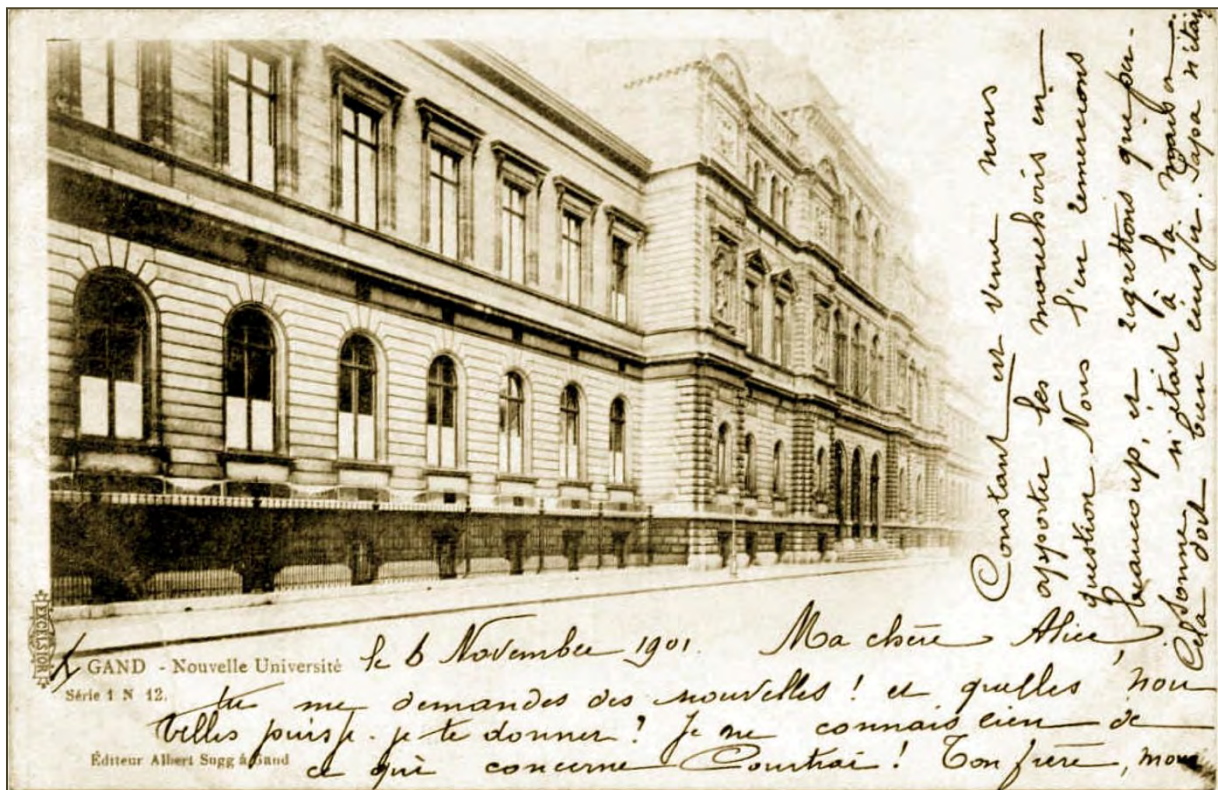 EXCELSIOR
GAND - Nouvelle Université
Série 1 N 12.
Éditeur Albert Sugg à Gand
le 6 November 1901. Ma chère Alice,
tu me demandes des nouvelles ! et quelles nou
velles puis-je te donner ? Je ne connais rien de
ce qui concerne Courtrai ! Ton frère,
Constant est venu nous
apporter les mouchoirs en
question. Nous l'en remercions
beaucoup, et regrettons que per-
sonne n'était à la maison
Cela doit bien Papa n'étai